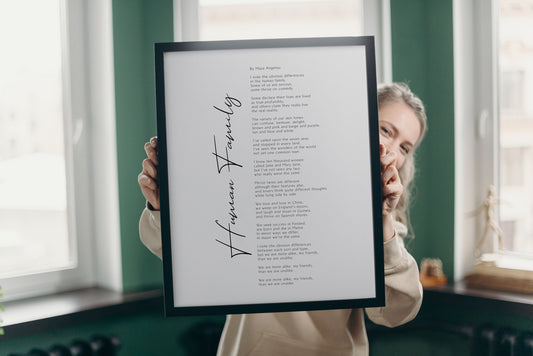 Human Family
By Maya Angelou
I note the obvious differences
in the human family.
Some of us are serious,
some thrive on comedy.
Some declare their lives are lived
as true profundity,
and others claim they really live
the real reality.
The variety of our skin tones
can confuse, bemuse, delight,
brown and pink and beige and purple,
tan and blue and white.
I've sailed upon the seven seas
and stopped in every land,
I've seen the wonders of the world
not yet one common man.
I know ten thousand women
called Jane and Mary Jane,
but I've not seen any two
who really were the same.
Mirror twins are different
although their features jibe,
and lovers think quite different thoughts
while lying side by side.
We love and lose in China,
we weep on England's moors,
and laugh and moan in Guinea,
and thrive on Spanish shores.
We seek success in Finland,
are born and die in Maine.
In minor ways we differ,
in major we're the same.
I note the obvious differences
between each sort and type,
but we are more alike, my friends,
than we are unalike.
We are more alike, my friends,
than we are unalike.
We are more alike, my friends,
than we are unalike.